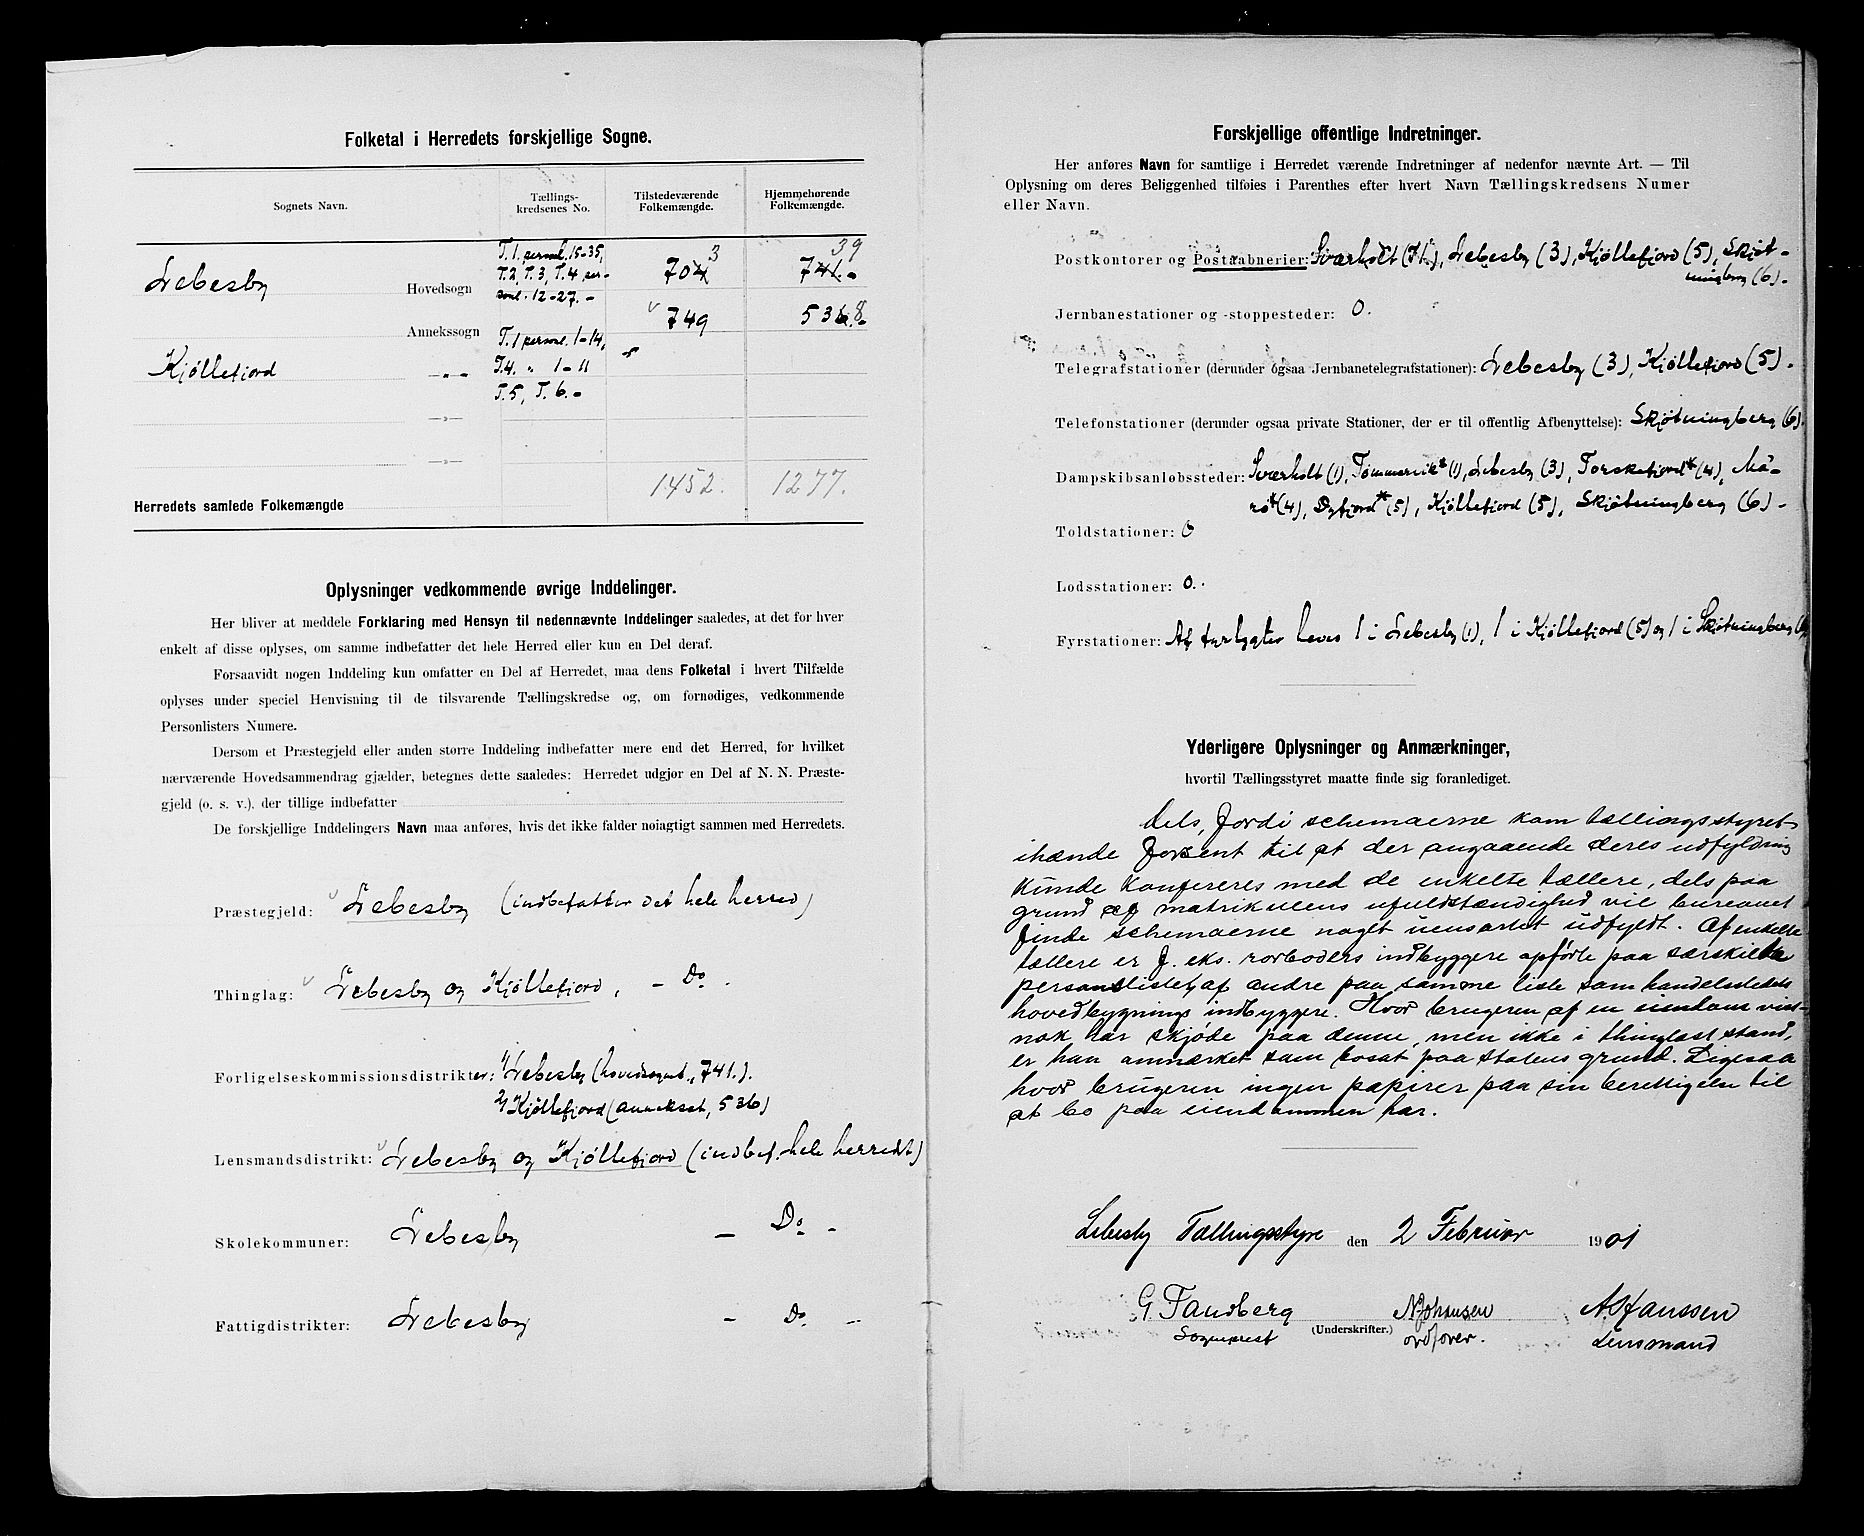 Folketal i Herredets forskjellige Sogne.
Sognets Navn.
Tællings-
kredsenes No.
Tilstedeværende
Folkemængde.
Hjemmehørende
Folkemængde.
Lebesby Hovedsogn
T. 1 personl. 15-35,
T. 2, T. 3, T. 4 per-
sonl. 12-27.-
704 3
741.- 39
Annekssogn
749
536.- 8
Kjøllefjord -„-
T. 1 personl. 1-14,
T. 4. „ 1-11
T. 5, T. 6.-
-»-
-»-
Herredets samlede Folkemængde 1452. 1277.
Oplysninger vedkommende øvrige Inddelinger.
Her bliver at meddele Forklaring med Hensyn til nedennævnte Inddelinger saaledes, at det for hver
enkelt af disse oplyses, om samme indbefatter det hele Herred eller kun en Del deraf.
Forsaavidt nogen Inddeling kun omfatter en Del af Herredet, maa dens Folketal i hvert Tilfælde
oplyses under speciel Henvisning til de tilsvarende Tællingskredse og, om fornødiges, vedkommende
Personlisters Numere.
Dersom et Præstegjeld eller anden større Inddeling indbefatter mere end det Herred, for hvilket
nærværende Hovedsammendrag gjælder, betegnes dette saaledes: Herredet udgjør en Del af N. N. Præste-
gjeld (o. s. v.), der tillige indbefatter
De forskjellige Inddelingers Navn maa anføres, hvis det ikke falder nøiagtigt sammen med Herredets.
Præstegjeld: Lebesby (indbefatter det hele herred)
Thinglag: Lebesby og Kjøllefjord, - Do.
Forligelseskommissionsdistrikter: 1/ Lebesby (hovedsognet, 741.).
2/ Kjøllefjord (annekset, 536)
Lensmandsdistrikt: Lebesby og Kjøllefjord (indbef. hele herredt)
Skolekommuner: Lebesby - Do -
Fattigdistrikter: Lebesby - Do. -
Forskjellige offentlige Indretninger.
Her anføres Navn for samtlige i Herredet værende Indretninger af nedenfor nævnte Art. — Til
Oplysning om deres Beliggenhed tilføies i Parenthes efter hvert Navn Tællingskredsens Numer
eller Navn.
Postkontorer og Postaabnerier: Sværholt (T1.), Lebesby (3), Kjöllefjord (5), Skjöt-
ningberg (6).
Jernbanestationer og -stoppesteder: 0.
Telegrafstationer (derunder ogsaa Jernbanetelegrafstationer): Lebesby (3), Kjöllefjord (5).
Telefonstationer (derunder ogsaa private Stationer, der er til offentlig Afbenyttelse): Skjötningberg (6).
Dampskibsanløbssteder: Sværholt (1), Tømmervik* (1), Lebesby (3), Torskefjord* (4), Må-
rö* (4), Dyfjord* (5), Kjöllefjord (5), Skjötningberg (6).
Toldstationer: 0
Lodsstationer: 0.
Fyrstationer: Af fyrlygter haves 1 i Lebesby (1), 1 i Kjöllefjord (5) og 1 i Skjötningberg (6
Yderligere Oplysninger og Anmærkninger,
hvortil Tællingsstyret maatte finde sig foranlediget.
Dels, fordi schemaerne kom tællingsstyret
ihænde forsent til at der angaaende deres udfyldning
kunde konfereres med de enkelte tællere, dels paa
grund af matrikulens ufuldstændighed vil bureauet
finde schemaerne noget uensartet udfyldt. Af enkelte
tællere er f. eks. rorboders indbyggere opførte paa særskilte
personlister, af andre paa samme liste som handelsstedets
hovedbygnings indbyggere. Hvor brugeren af en eiendom vist-
nok har skjøde paa denne, men ikke i thinglæst stand,
er han anmærket som bosat paa statens grund. Ligesaa
hvor brugeren ingen papirer paa sin berettigelse til
at bo paa eiendommen har.
Lebesby Tællingsstyre den 2 Februar 1901
G. Tandberg
Sogneprest
(Underskrifter.)
N. Johansen
ordfører.
A. Hanssen
Lensmand